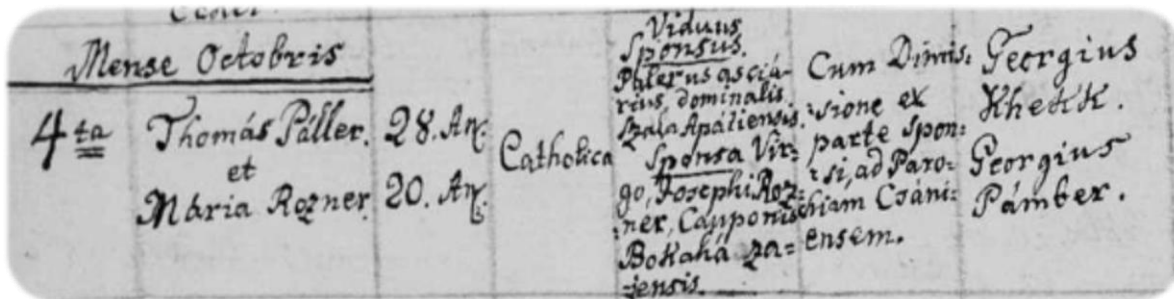 Mense Octobris
4ta
Thomás Páller.
et
Mária Rozner.
28. An.
20. An.
Catholica
Viduus
Sponsus.
Palerus asciá-
rius, dominalis
Szala Apáliensis.
Sponsa Vir-
go, Josephi Roz-
ner, Cauponis
Bokahá za-
jensis.
Cum Dimis:
:sione ex
parte Spon:
:si, ad Paro-
chiam Csáni-
ensem.
Georgius
Khekk.
Georgius
Pámber.